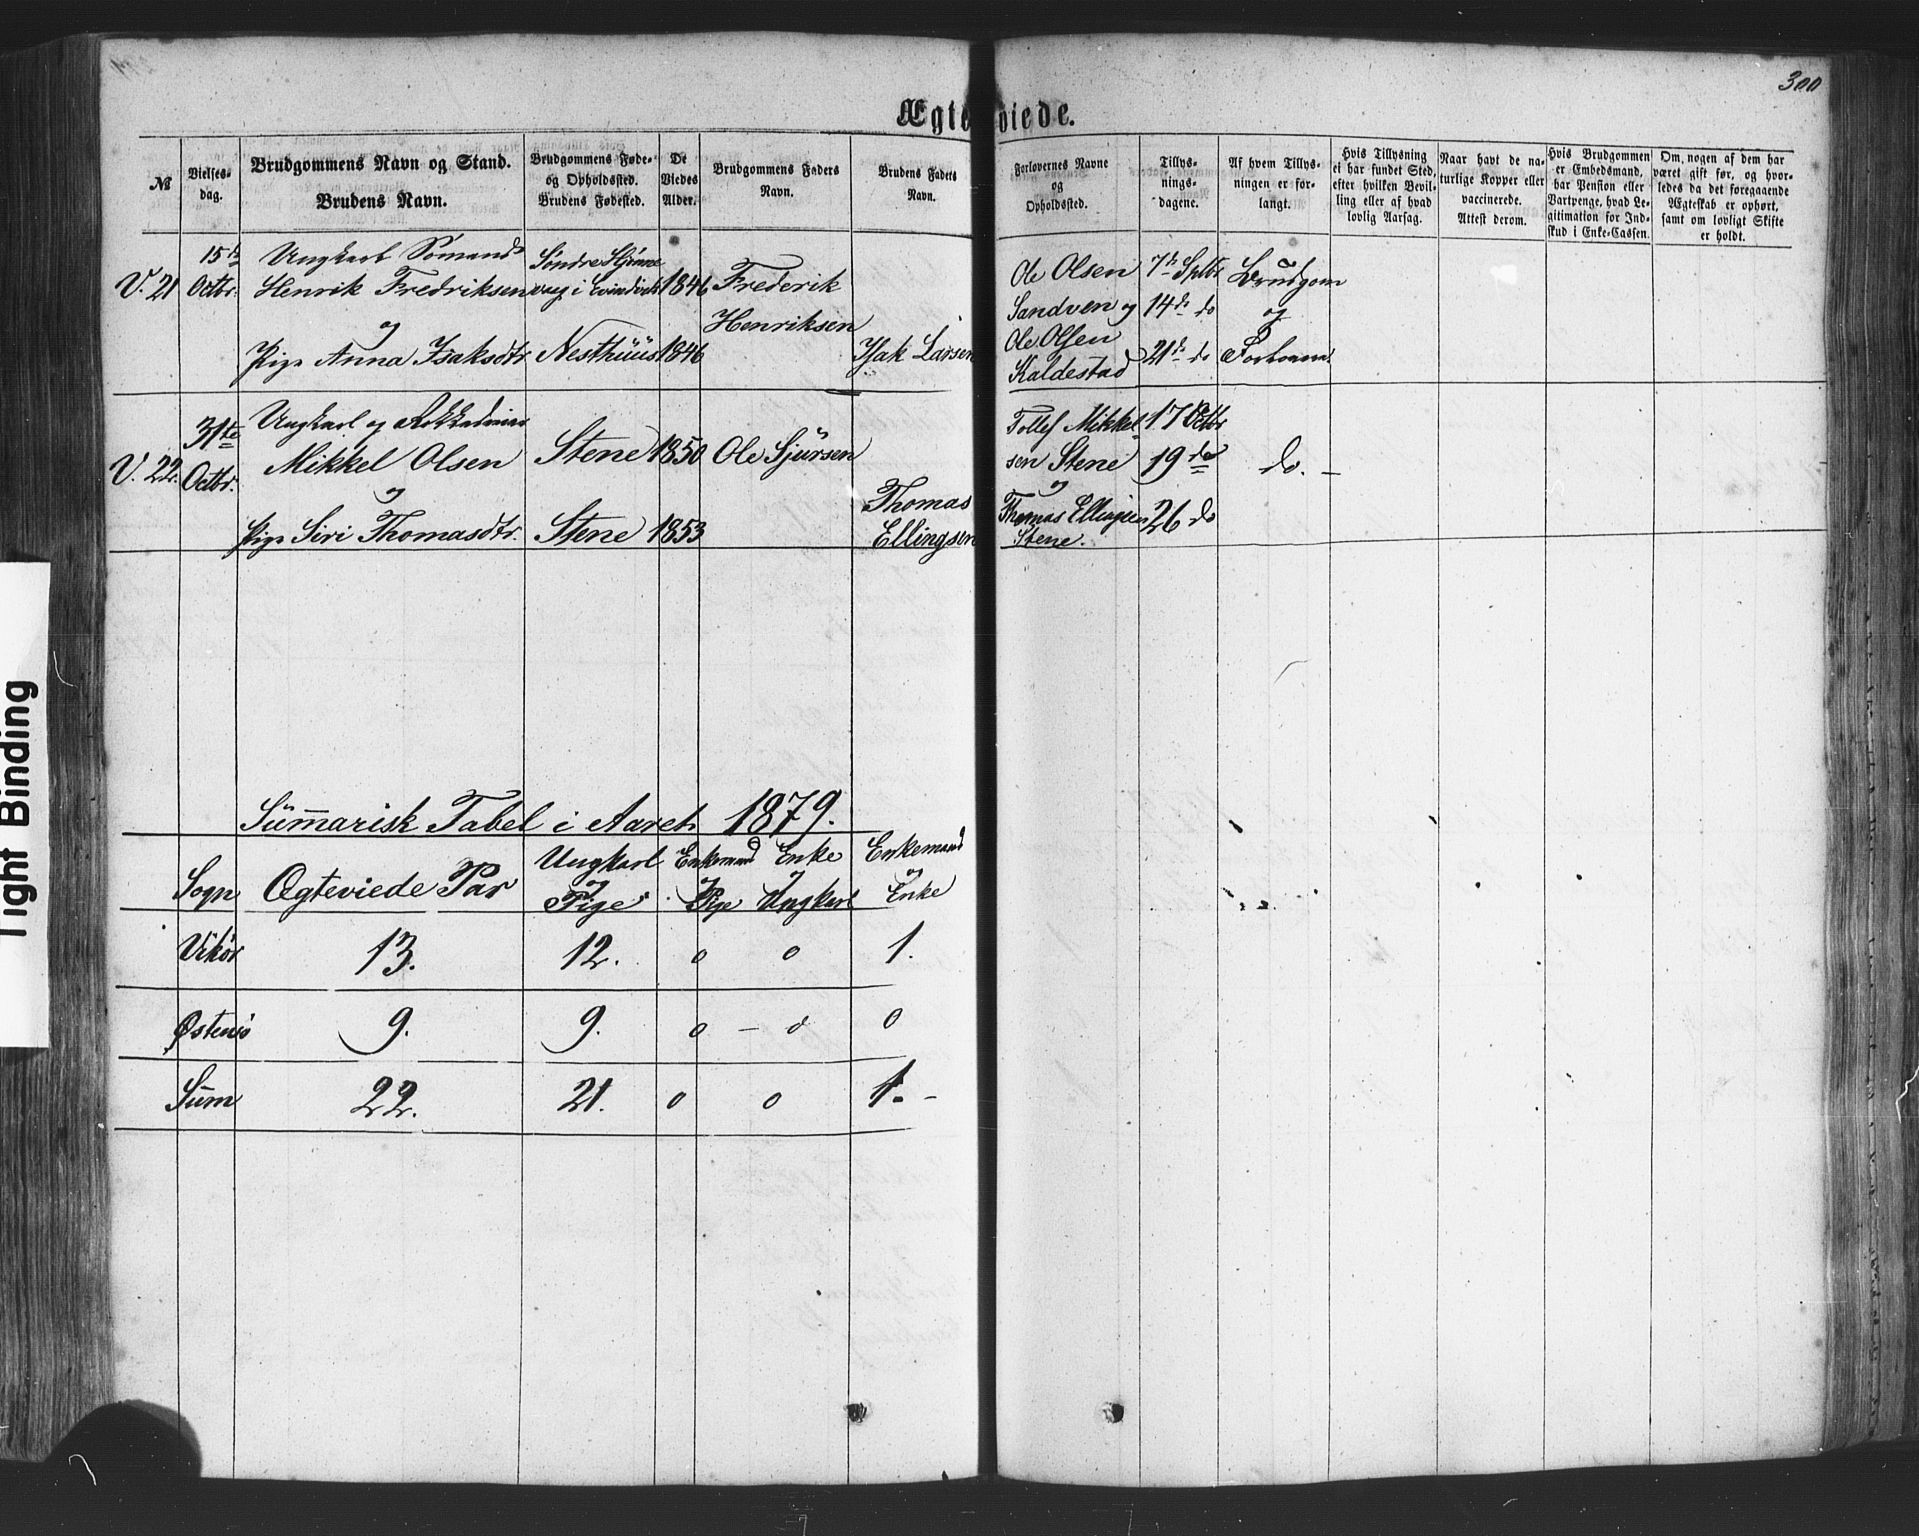 300
Ægteviede.
№
Vielses-
dag.
Brudgommens Navn og Stand.
Brudens Navn.
Brudgommens Føde-
og Opholdssted.
Brudens Fødested.
De
Viedes
Alder.
Brudgommens Faders
Navn.
Brudens Faders
Navn.
Forlovernes Navne
og
Opholdssted.
Tillys-
nings-
dagene.
Af hvem Tillys-
ningen er for-
langt.
Hvis Tillysning
ei har fundet Sted,
efter hvilken Bevil-
ling eller af hvad
lovlig Aarsag.
Naar havt de na-
turlige Kopper eller
vaccinerede.
Attest derom.
Hvis Brudgommen
er Embedsmand,
har Pension eller
Vartpenge, hvad Le-
gitimation for Ind-
skud i Enke-Cassen.
Om nogen af dem har
været gift før, og hvor-
ledes da det foregaaende
Ægteskab er ophørt,
samt om lovligt Skifte
er holdt.
V. 21
15de
Octbr.
Ungkarl Sømand
Henrik Fredriksen
og
Pige Anna Isaksdtr.
Søndre Hjønne
vaag i Evindvik
Nesthuus
1846
1846
Frederik
Henriksen
Isak Larsen
Ole Olsen
Sandven og
Ole Olsen
Kaldestad
7de Sptbr
14de do
21de do
Brudgom
og
Forlovere
V. 22.
31te
Octbr.
Ungkarl og Rokkedreier
Mikkel Olsen
og
Pige Siri Thomasdtr.
Stene
Stene
1850
1853
Ole Sjursen
Thomas
Ellingsen
Tollef Mikkel-
sen Stene
og
Thomas Ellingsen
Stene.
17 Octbr
19 do
26 do
do. –
Summarisk Tabel i Aaret 1879.
Sogn
Ægteviede Par
Ungkarl
og
Pige
Enkemand
og
Pige
Enke
og
Ungkarl
Enkemand
og
Enke
Vikør 13. 12. 0 0 1.
Østensø 9. 9. 0 – 0 0
Sum 22. 21. 0 0 1. –
Tight Binding